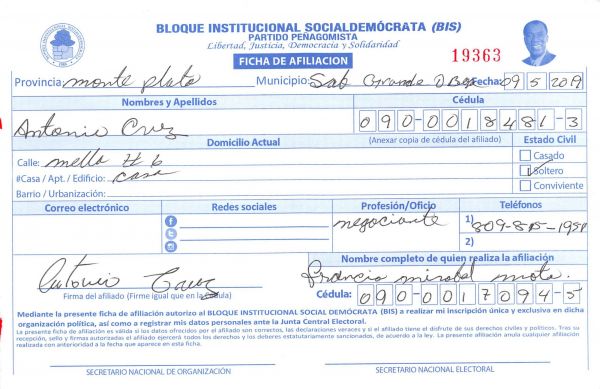 BLOQUE INSTITUCIONAL SOCIALDEMÓCRATA (BIS)
PARTIDO PEÑAGOMISTA
Libertad, Justicia, Democracia y Solidaridad
FICHA DE AFILIACION
19363
Provincia: monte plata Municipio: Sab Grande D Boya Fecha: 09 5 2019
Nombres y Apellidos Cédula
Antonio Cruz 090-0018481-3
Domicilio Actual (Anexar copia de cédula del afiliado) Estado Civil
Calle: mella # 6 Casado
#Casa / Apt. / Edificio: casa Soltero
Barrio / Urbanización: Conviviente
Correo electrónico Redes sociales Profesión/Oficio Teléfonos
negociante 1) 809-815-1951
2)
Nombre completo de quien realiza la afiliación
Antonio Cruz francia mirabal mota.
Firma del afiliado (Firme igual que en la cédula) Cédula: 090-0017094-5
Mediante la presente ficha de afiliación autorizo al BLOQUE INSTITUCIONAL SOCIAL DEMÓCRATA (BIS) a realizar mi inscripción única y exclusiva en dicha
organización política, así como a registrar mis datos personales ante la Junta Central Electoral.
La presente ficha de afiliación es válida si los datos ofrecidos por el afiliado son correctos, las declaraciones veraces y si el afiliado tiene el disfrute de sus derechos civiles y políticos. Tras su
recepción, sello y firmas autorizadas el afiliado ejercerá todos los derechos y los deberes estatutariamente sancionados, de acuerdo a la ley. La presente afiliación anula cualquier afiliación
realizada con anterioridad a la fecha que aparece en esta ficha.
SECRETARIO NACIONAL DE ORGANIZACIÓN SECRETARIO NACIONAL ELECTORAL